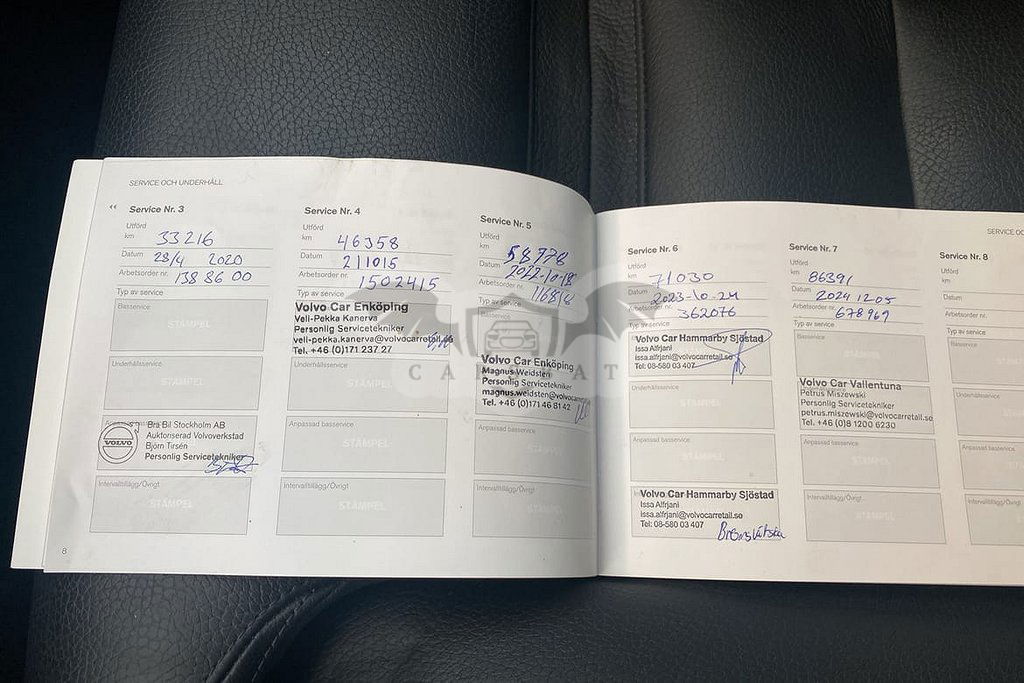 SERVICE OCH UNDERHÅLL
‹‹ Service Nr. 3
Utförd
km 33216
Datum 28/4 2020
Arbetsorder nr. 138 86 00
Typ av service
Basservice
STÄMPEL
Underhållsservice
STÄMPEL
Bra Bil Stockholm AB
Auktoriserad Volvoverkstad
Björn Tirsén
Personlig Servicetekniker
VOLVO
Intervalltillägg/Övrigt
STÄMPEL
8
Service Nr. 4
Utförd
km 46358
Datum 211015
Arbetsorder nr. 1502415
Typ av service
Volvo Car Enköping
Veli-Pekka Kanerva
Personlig Servicetekniker
veli-pekka.kanerva@volvocarretail.se
Tel. +46 (0)171 237 27
Underhållsservice
STÄMPEL
Anpassad basservice
STÄMPEL
Intervalltillägg/Övrigt
STÄMPEL
Service Nr. 5
Utförd
km 58778
Datum 2022-10-18
Arbetsorder nr.
Typ av service
Basservice
Volvo Car Enköping
Magnus Weidsten
Personlig Servicetekniker
magnus.weidsten@volvocar
Tel. +46 (0)171 46 81 42
Anpassad basservice
STÄMPEL
Intervalltillägg/Övrigt
STÄMPEL
Service Nr. 6
Utförd
km 71030
Datum 2023-10-24
Arbetsorder nr. 362076
Typ av service
Volvo Car Hammarby Sjöstad
Issa Alfrjani
issa.alfrjani@volvocarretail.se
Tel: 08-580 03 407
Underhållsservice
STÄMPEL
Anpassad basservice
STÄMPEL
Volvo Car Hammarby Sjöstad
Issa Alfrjani
issa.alfrjani@volvocarretail.se
Tel: 08-580 03 407
Service Nr. 7
Utförd
km 86391
Datum 2024 12 05
Arbetsorder nr. 678969
Typ av service
Basservice
STÄMPEL
Volvo Car Vallentuna
Petrus Miszewski
Personlig Servicetekniker
petrus.miszewski@volvocarretail.se
Tel. +46 (0)8 1200 6230
Anpassad basservice
STÄMPEL
Intervalltillägg/Övrigt
STÄMPEL
SERVICE OC
Service Nr. 8
Utförd
km
Datum
Arbetsorder nr.
Typ av service
Basservice
Underhållsservice
Anpassad basservice
Intervalltillägg/Övrigt